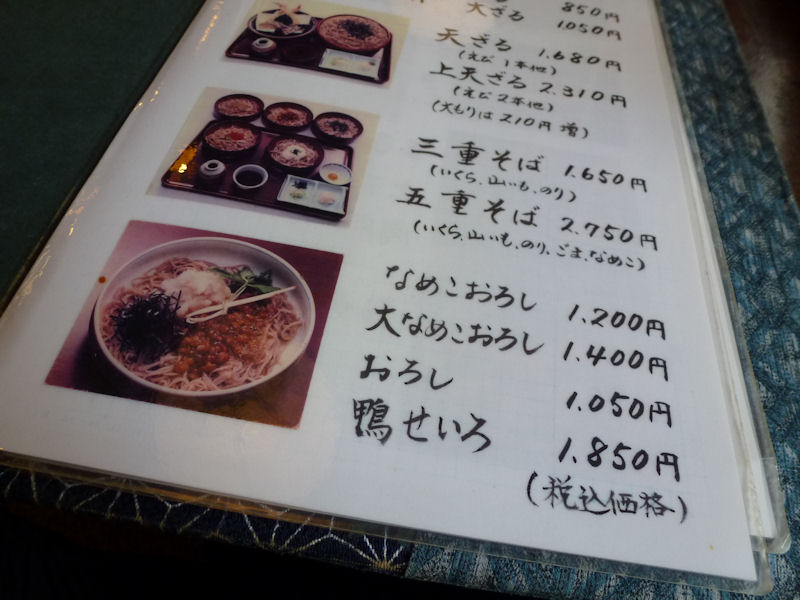 850円
大ざる 1.050円
天ざる 1.680円
(えび1本他)
上天ざる 2.310円
(えび2本他)
(大もりは210円増)
三重そば 1.650円
(いくら、山いも、のり)
五重そば 2.750円
(いくら、山いも、のり、ごま、なめこ)
なめこおろし 1.200円
大なめこおろし 1.400円
おろし 1.050円
鴨せいろ 1.850円
(税込価格)